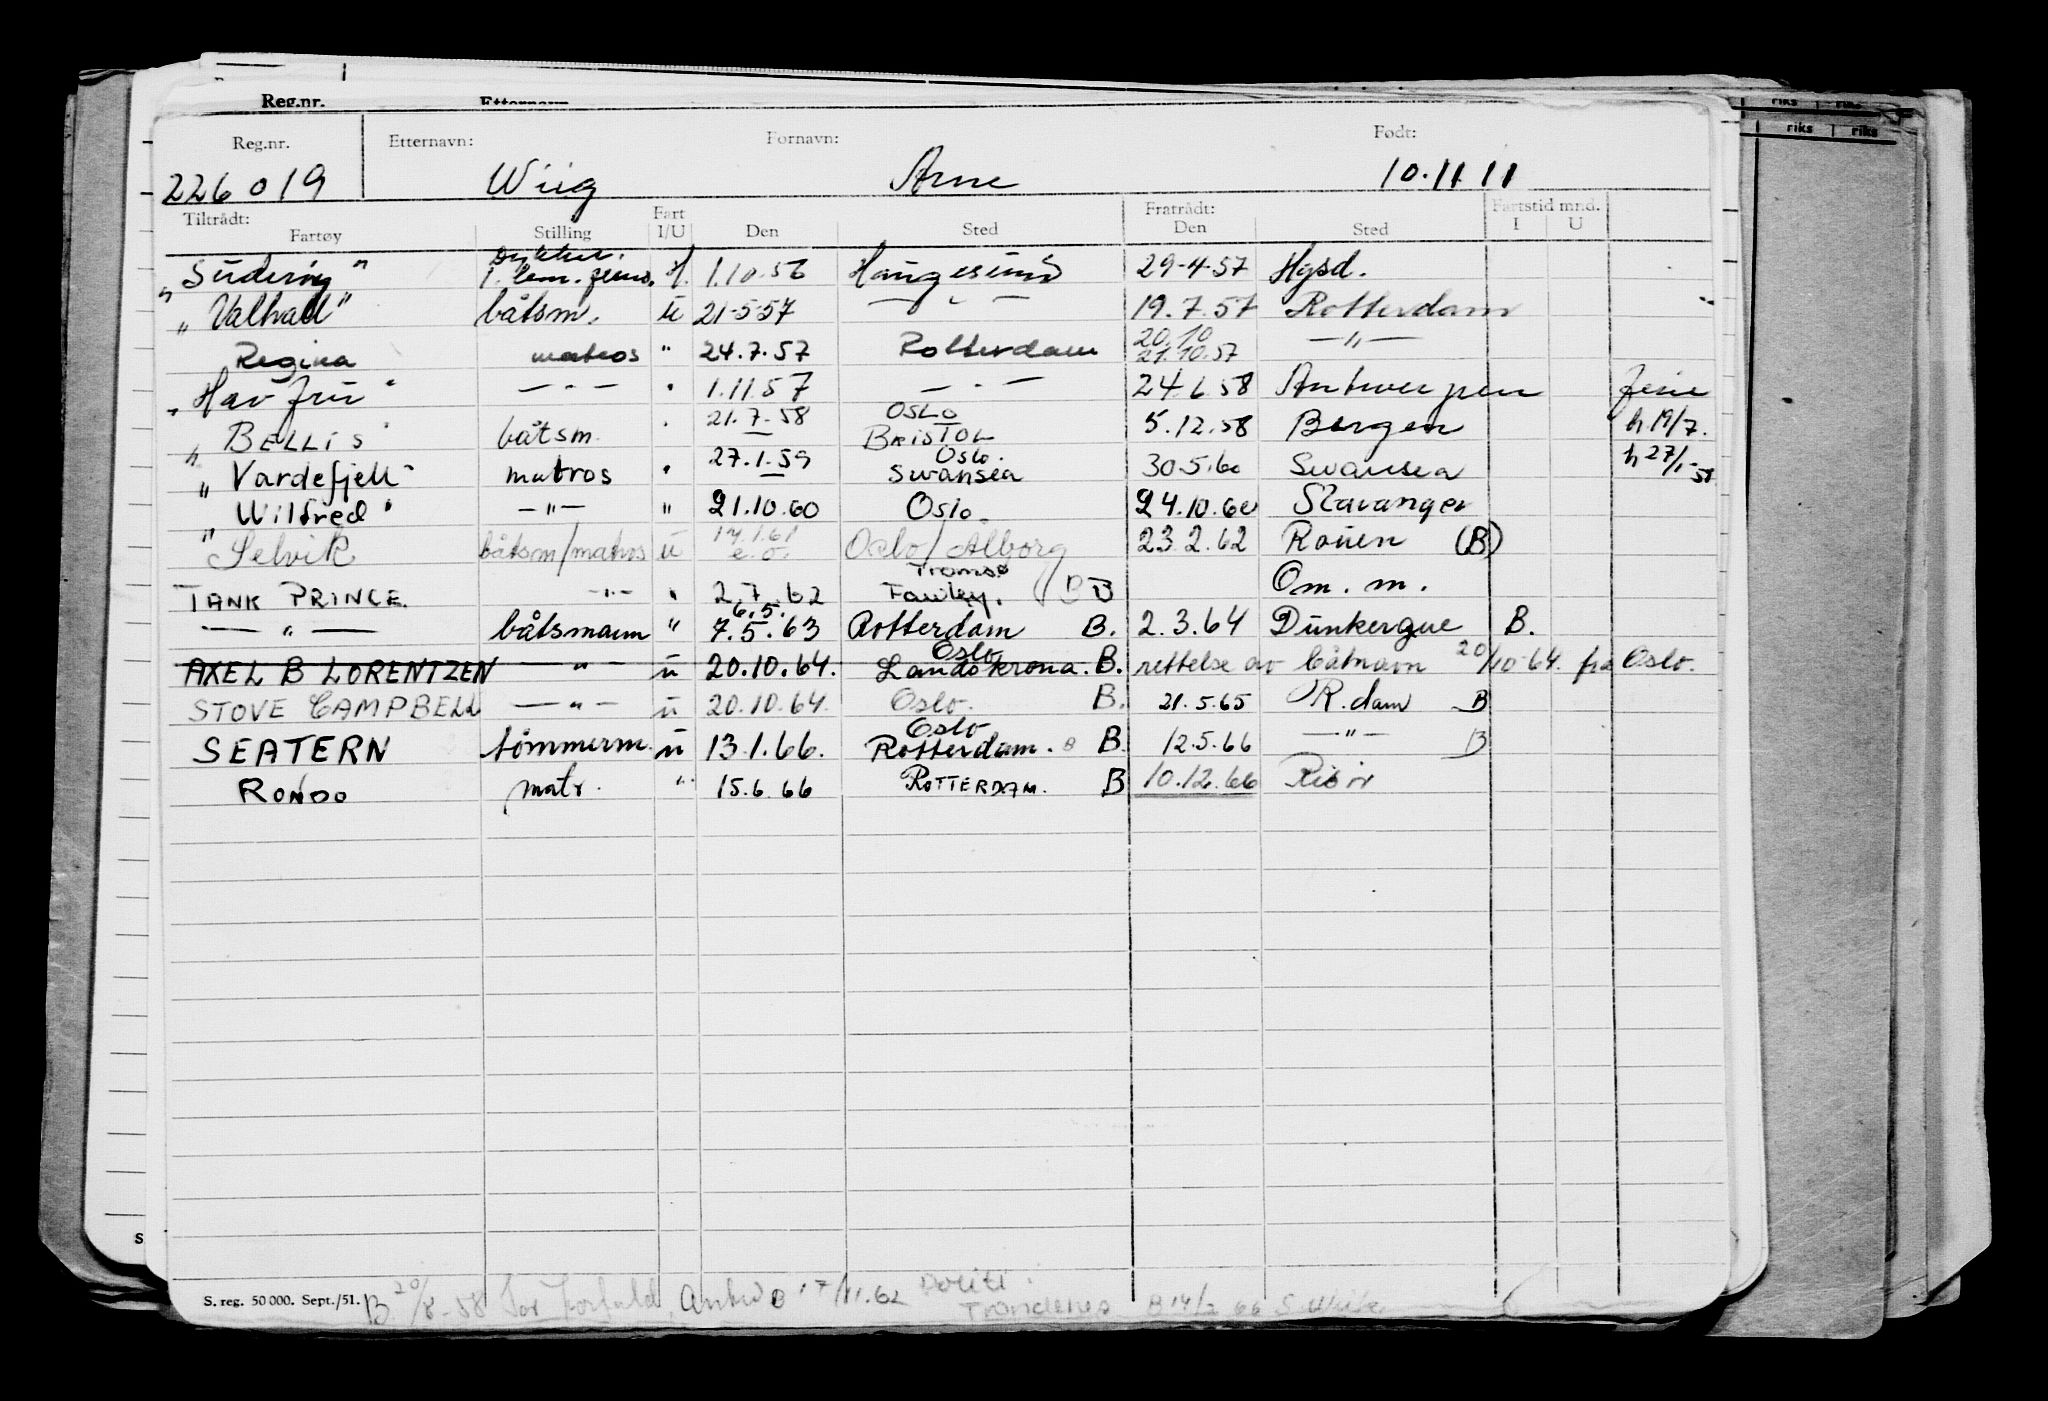 Reg.nr. Etternavn
riks riks
riks riks
Reg.nr. Etternavn: Fornavn: Født:
226019 Wiig Arne 10.11.11
Tiltrådt: Fart I/U Fratrådt: Fartstid mnd.
Fartøy Stilling Den Sted Den Sted I U
"Suderøy" H. 1.10.56 Haugesund 29-4-57 Hgsd.
"Valhall" båtsm. u 21-5-57 — " — 19.7.57 Rotterdam
Regina matros " 24.7.57 Rotterdam 20.10 21.10.57 — " —
"Havfru" — " — " 1.11.57 — " — 24.6.58 Antwerpen ferie
"BELLIS" båtsm. " 21.7.58 OSLO BRISTOL 5.12.58 Bergen h 19/7.
"Vardefjell" matros " 27.1.59 Oslo. Swansea 30.5.60 Swansea h 27/1-59
"Wilfred" — " — " 21.10.60 Oslo. 24.10.60 Stavanger
Selvik båtsm/matros u 17.1.61 e.o. Oslo/Alborg 23.2.62 Rouen (B)
TANK PRINCE. — " — " 2.7.62 Tromsø Fawley. B Om. m.
— " — båtsmann " 6.5. 7.5.63 Rotterdam B. 2.3.64 Dunkerque B.
AXEL B LORENTZEN — " — u 20.10.64. Oslo Landskrona. B. rettelse av båtnavn 20/10-64. fra Oslo.
STOVE CAMPBELL — " — u 20.10.64. Oslo. B. 21.5.65 R.dam B
SEATERN tømmerm. u 13.1.66. Oslo Rotterdam. B B. 12.5.66 — " — B
RONDO matr. " 15.6.66 ROTTERDAM. B 10.12.66 Risør
S. reg. 50 000. Sept./51. B. 20/8-58 17/11.62 Politi Trondenes B 14/2 66